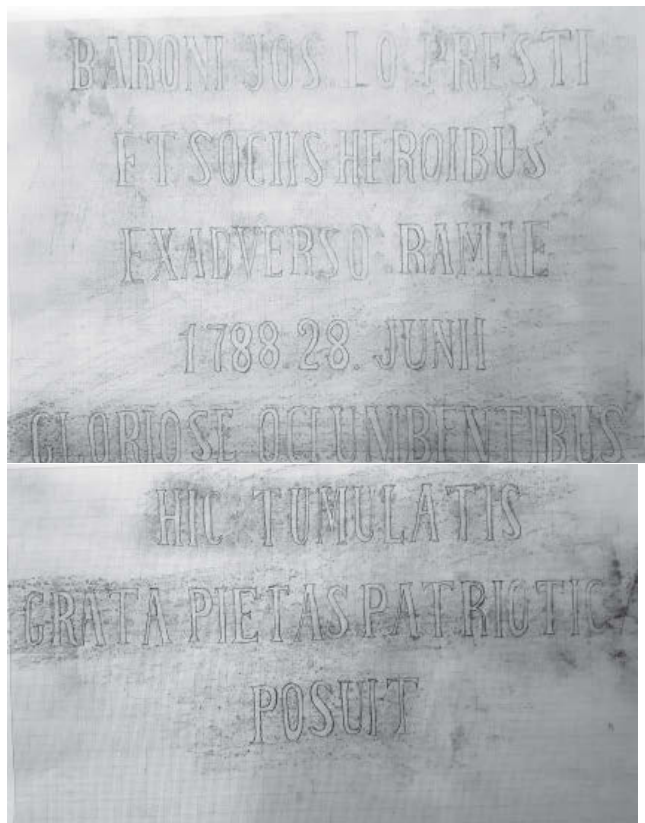 BARONI JOS. LO PRESTI
ET SOCIIS HEROIBUS
EXADVERSO RAMAE
1788. 28. JUNII
GLORIOSE OCIUMBENTIBUS
HIC TUMULATIS
GRATA PIETAS PATRIOTICA
POSUIT